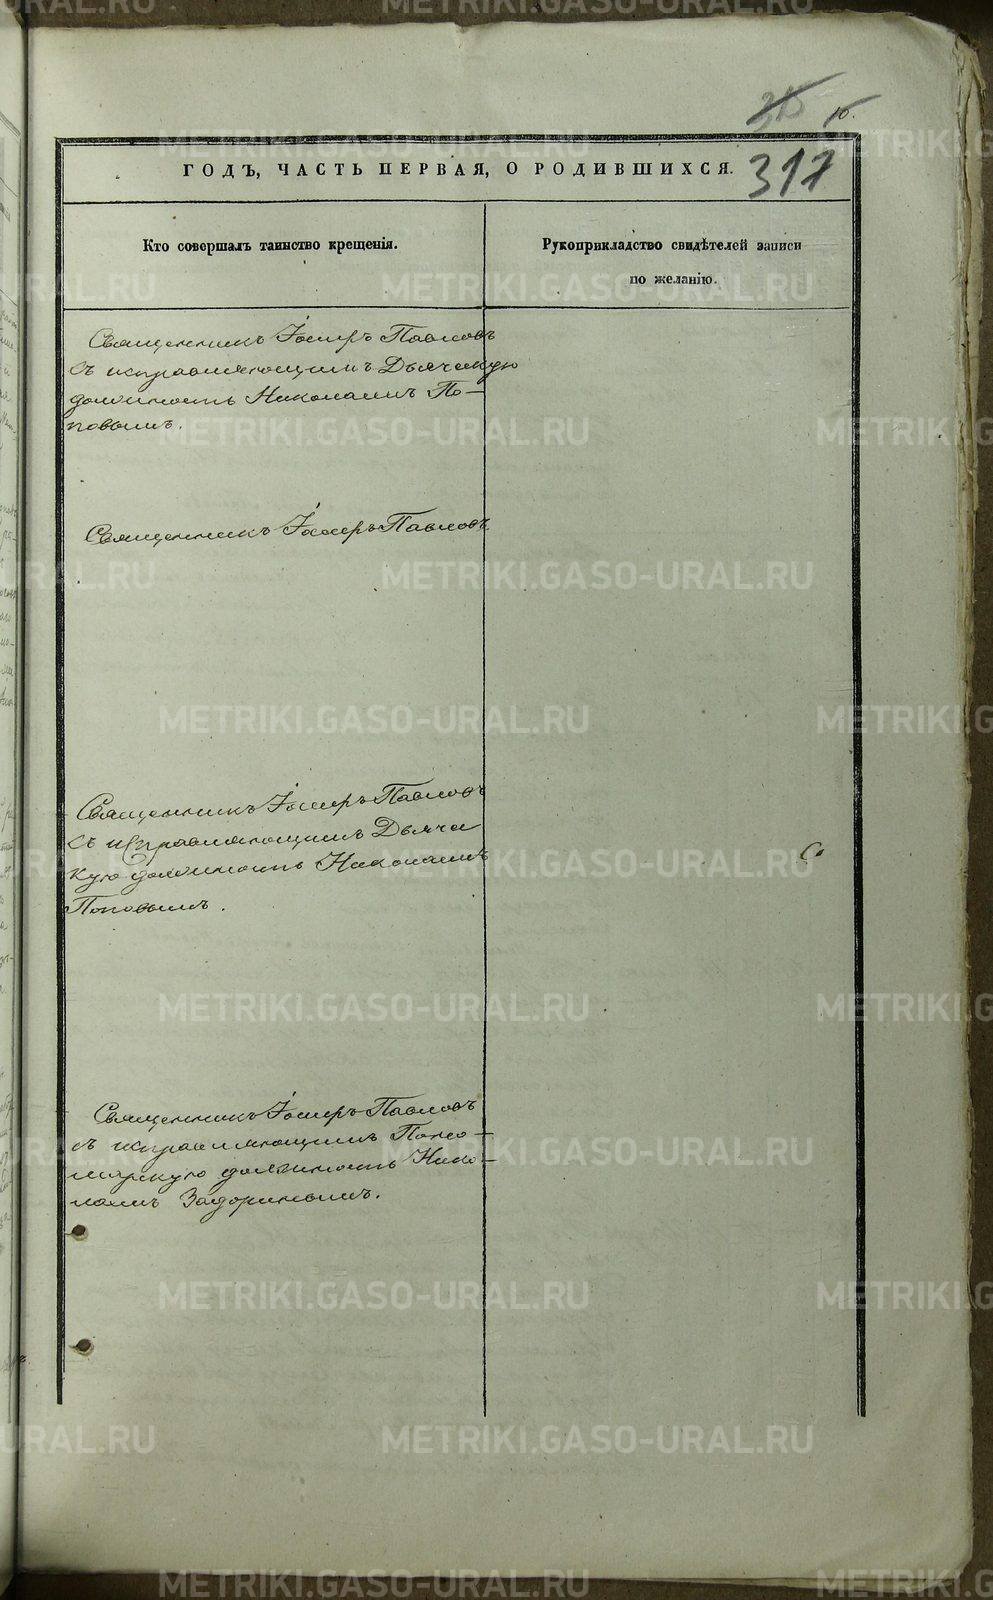 10.
317
ГОДЪ, ЧАСТЬ ПЕРВАЯ, О РОДИВШИХСЯ.
Кто совершалъ таинство крещенія.
Рукоприкладство свидѣтелей записи
по желанію.
Священникъ Іосифъ Павловъ
съ исправляющимъ Дьяческую
должность Николаемъ По-
повымъ.
Священникъ Іосифъ Павловъ
Священникъ Іосифъ Павловъ
съ исправляющимъ Дьячес
кую должность Николаемъ
Поповымъ.
Священникъ Іосифъ Павловъ
съ исправляющимъ Поно-
марскую должность Нико-
лаемъ Задоринымъ.
METRIKI.GASO-URAL.RU